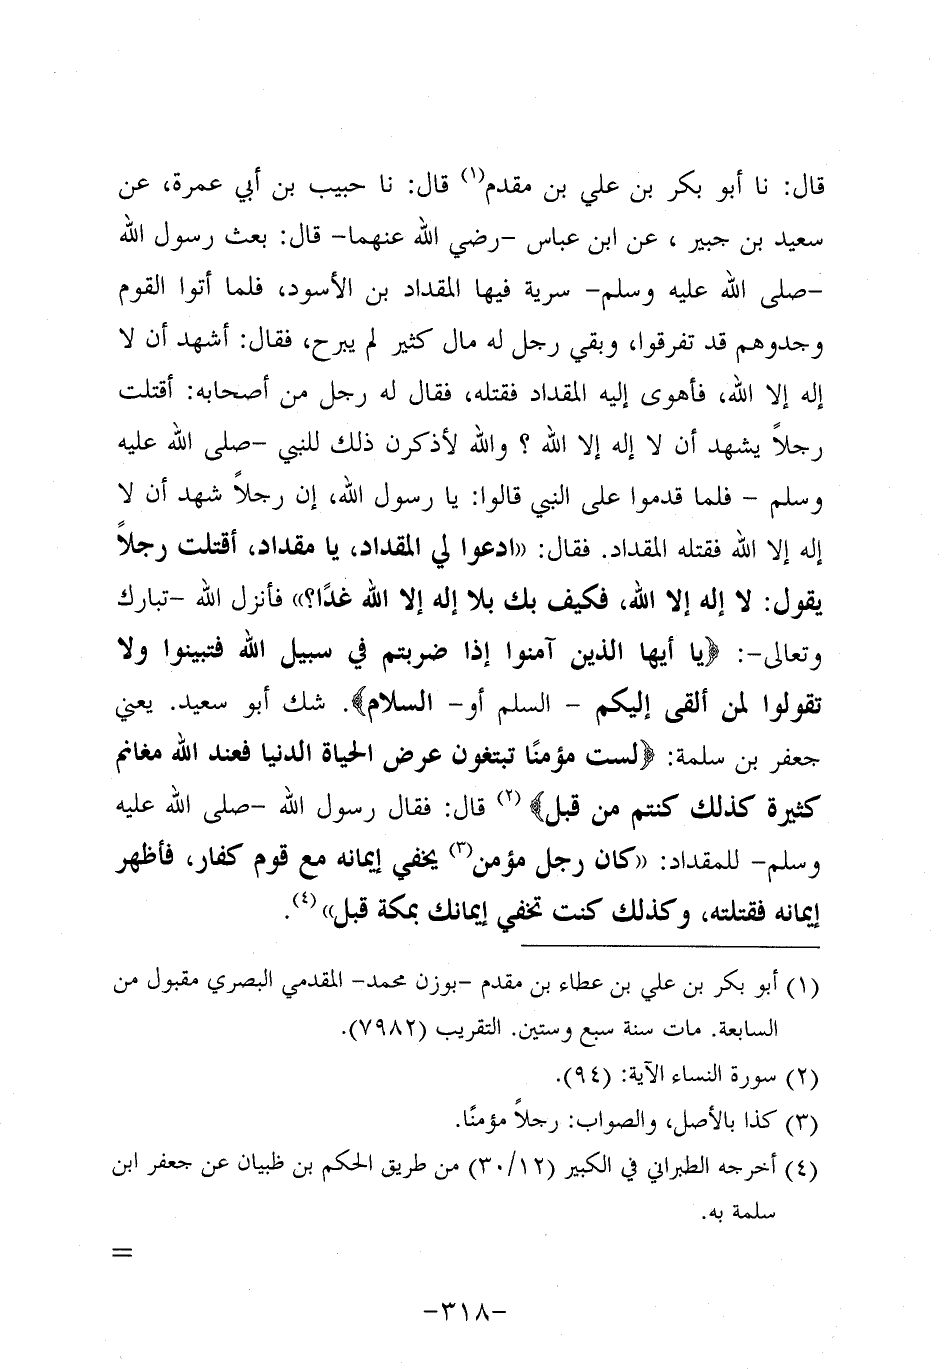 قال: نا أبو بكر بن علي بن مقدم(١) قال: نا حبيب بن أبي عمرة، عن
سعيد بن جبير ، عن ابن عباس -رضي الله عنهما- قال: بعث رسول الله
-صلى الله عليه وسلم- سرية فيها المقداد بن الأسود، فلما أتوا القوم
وجدوهم قد تفرقوا، وبقي رجل له مال كثير لم يبرح، فقال: أشهد أن لا
إله إلا الله، فأهوى إليه المقداد فقتله، فقال له رجل من أصحابه: أقتلت
رجلاً يشهد أن لا إله إلا الله ؟ والله لأذكرن ذلك للنبي -صلى الله عليه
وسلم - فلما قدموا على النبي قالوا: يا رسول الله، إن رجلاً شهد أن لا
إله إلا الله فقتله المقداد. فقال: «ادعوا لي المقداد، يا مقداد، أقتلت رجلاً
يقول: لا إله إلا الله، فكيف بك بلا إله إلا الله غدًا؟» فأنزل الله -تبارك
وتعالى-: ﴿يا أيها الذين آمنوا إذا ضربتم في سبيل الله فتبينوا ولا
تقولوا لمن ألقى إليكم - السلم أو- السلام﴾. شك أبو سعيد. يعني
جعفر بن سلمة: ﴿لست مؤمنًا تبتغون عرض الحياة الدنيا فعند الله مغانم
كثيرة كذلك كنتم من قبل﴾(٢) قال: فقال رسول الله -صلى الله عليه
وسلم- للمقداد: «كان رجل مؤمن(٣) يخفي إيمانه مع قوم كفار، فأظهر
إيمانه فقتلته، وكذلك كنت تخفي إيمانك بمكة قبل»(٤).
(١) أبو بكر بن علي بن عطاء بن مقدم -بوزن محمد- المقدمي البصري مقبول من
السابعة. مات سنة سبع وستين. التقريب (٧٩٨٢).
(٢) سورة النساء الآية: (٩٤).
(٣) كذا بالأصل، والصواب: رجلاً مؤمنًا.
(٤) أخرجه الطبراني في الكبير (٣٠/١٢) من طريق الحكم بن ظبيان عن جعفر ابن
سلمة به.
=
-٣١٨-